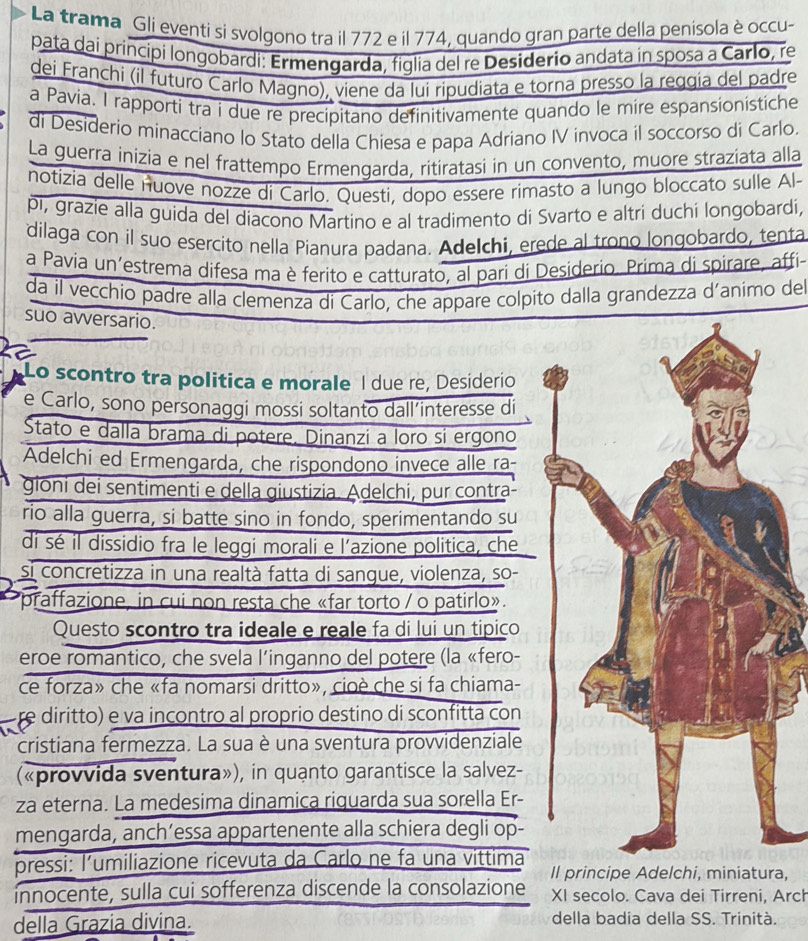 La trama Gli eventi si svolgono tra il 772 e il 774, quando gran parte della penisola è occu-
pata dai principi longobardi: Ermengarda, figlia del re Desiderio andata in sposa a Carlo, re
dei Franchi (il futuro Carlo Magno), viene da lui ripudiata e torna presso la reggia del padre
a Pavia. I rapporti tra i due re precipitano definitivamente quando le mire espansionistiche
di Desiderio minacciano lo Stato della Chiesa e papa Adriano IV invoca il soccorso di Carlo.
La guerra inizia e nel frattempo Ermengarda, ritiratasi in un convento, muore straziata alla
notizia delle nuove nozze di Carlo. Questi, dopo essere rimasto a lungo bloccato sulle Al-
pi, grazie alla guida del diacono Martino e al tradimento di Svarto e altri duchi longobardi,
dilaga con il suo esercito nella Pianura padana. Adelchi, erede al trono longobardo, tenta
a Pavia un'estrema difesa ma è ferito e catturato, al pari di Desiderio. Prima di spirare, affi-
da il vecchio padre alla clemenza di Carlo, che appare colpito dalla grandezza d'animo del
suo avversario.
Lo scontro tra politica e morale I due re, Desiderio
e Carlo, sono personaggi mossi soltanto dall'interesse di
Stato e dalla brama di potere. Dinanzi a loro si ergono
Adelchi ed Ermengarda, che rispondono invece alle ra-
gioni dei sentimenti e della giustizia. Adelchi, pur contra-
rio alla guerra, si batte sino in fondo, sperimentando su
di sé il dissidio fra le leggi morali e l'azione politica, che
si concretizza in una realtà fatta di sangue, violenza, so-
praffazione, in cui non resta che «far torto / o patirlo».
Questo scontro tra ideale e reale fa di lui un tipico
eroe romantico, che svela l'inganno del potere (la «fero-
ce forza» che «fa nomarsi dritto», cioè che si fa chiama-
re diritto) e va incontro al proprio destino di sconfitta con
cristiana fermezza. La sua è una sventura provvidenziale
(«provvida sventura»), in quanto garantisce la salvez-
za eterna. La medesima dinamica riguarda sua sorella Er-
mengarda, anch'essa appartenente alla schiera degli op-
pressi: l'umiliazione ricevuta da Carlo ne fa una vittima
innocente, sulla cui sofferenza discende la consolazione
della Grazia divina.
Il principe Adelchi, miniatura,
XI secolo. Cava dei Tirreni, Arch
della badia della SS. Trinità.